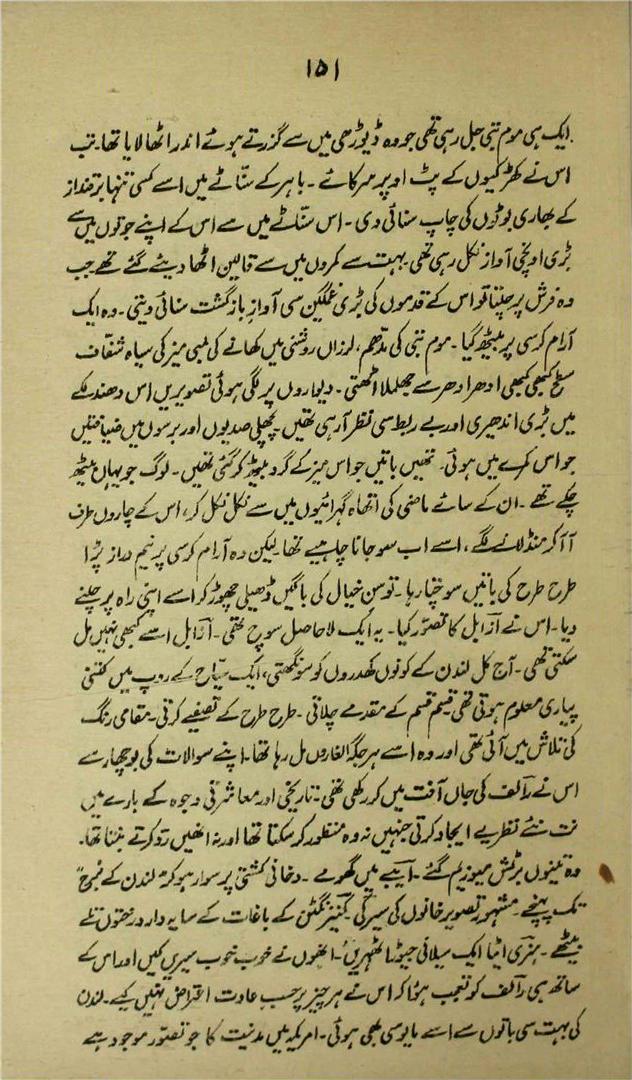 ۱۵۱
ایک ہی موم بتی جل رہی تھی جو وہ ڈیوڑھی میں سے گزرتے ہوئے اندر اٹھا لایا تھا۔ تب
اس نے کھڑکیوں کے پٹ اوپر سرکائے۔ باہر کے سنّاٹے میں اسے کسی تنہا برقنداز
کے بھاری بوٹوں کی چاپ سنائی دی۔ اس سنّاٹے میں سے اس کے اپنے جوتوں میں سے
بڑی اونچی آواز نکل رہی تھی۔ بہت سے کمروں میں سے قالین اٹھا دیئے گئے تھے جب
وہ فرش پر چلتا تو اس کے قدموں کی بڑی غمگین سی آوازِ بازگشت سنائی دیتی۔ وہ ایک
آرام کرسی پر بیٹھ گیا۔ موم بتی کی مدّھم، لرزاں روشنی میں کھانے کی لمبی میز کی سیاہ شفّاف
سطح کبھی کبھی ادھر ادھر سے جھلملا اٹھتی۔ دیواروں پر لگی ہوئی تصویریں اس دھندلکے
میں بڑی اندھیری اور بے ربط سی نظر آ رہی تھیں۔ پچھلی صدیوں اور برسوں میں ضیافتیں
جو اس کمرے میں ہوئی تھیں باتیں جو اس میز کے گرد بیٹھ کر کی گئی تھیں۔ لوگ جو یہاں بیٹھ
چکے تھے۔ ان کے سائے ماضی کی اتھاہ گہرائیوں میں سے نکل نکل کر، اس کے چاروں طرف
آ آ کر منڈلانے لگے، اسے اب سو جانا چاہیے تھا لیکن وہ آرام کرسی پر نیم دراز پڑا
طرح طرح کی باتیں سوچتا رہا۔ توسنِ خیال کی باگیں ڈھیلی چھوڑ کر اسے اپنی راہ پر چلنے
دیا۔ اس نے آزابل کا تصوّر کیا۔ یہ ایک لاحاصل سوچ تھی۔ آزابل اسے کبھی نہیں مل
سکتی تھی۔ آج کل لندن کے کونوں کھدروں کو سونگھتی، ایک سیّاح کے روپ میں کتنی
پیاری معلوم ہوتی تھی قسم قسم کے مقدمے چلاتی۔ طرح طرح کے تصفیے کرتی۔ مقامی رنگ
کی تلاش میں آئی تھی اور وہ اسے ہر جگہ الغاروں مل رہا تھا۔ اپنے سوالات کی بوچھار سے
اس نے رآلف کی جاں آفت میں کر رکھی تھی۔ تاریخی اور معاشرتی وجوہ کے بارے میں
نت نئے نظریے ایجاد کرتی جنہیں نہ وہ منظور کر سکتا تھا اور نہ انھیں ردّ کرتے بنتا تھا۔
وہ تینوں برٹش میوزیم گئے۔ ایبے میں گھومے۔ دخانی کشتی پر سوار ہو کر "لندن کے برج"
تک پہنچے۔ مشہور تصویر خانوں کی سیر کی کینزنگٹن کے باغات کے سایہ دار درختوں تلے
بیٹھے۔ ہنری اٹیا ایک سیلانی جیوڑا ٹھہریں۔ انھوں نے خوب خوب سیریں کیں اور اس کے
ساتھ ہی رآلف کو تعجب ہوا کہ اس نے ہر چیز پر حسب عادت اعتراض نہیں کیے۔ لندن
کی بہت سی باتوں سے اسے مایوسی بھی ہوئی۔ امریکہ میں مدنیت کا جو تصوّر موجود ہے